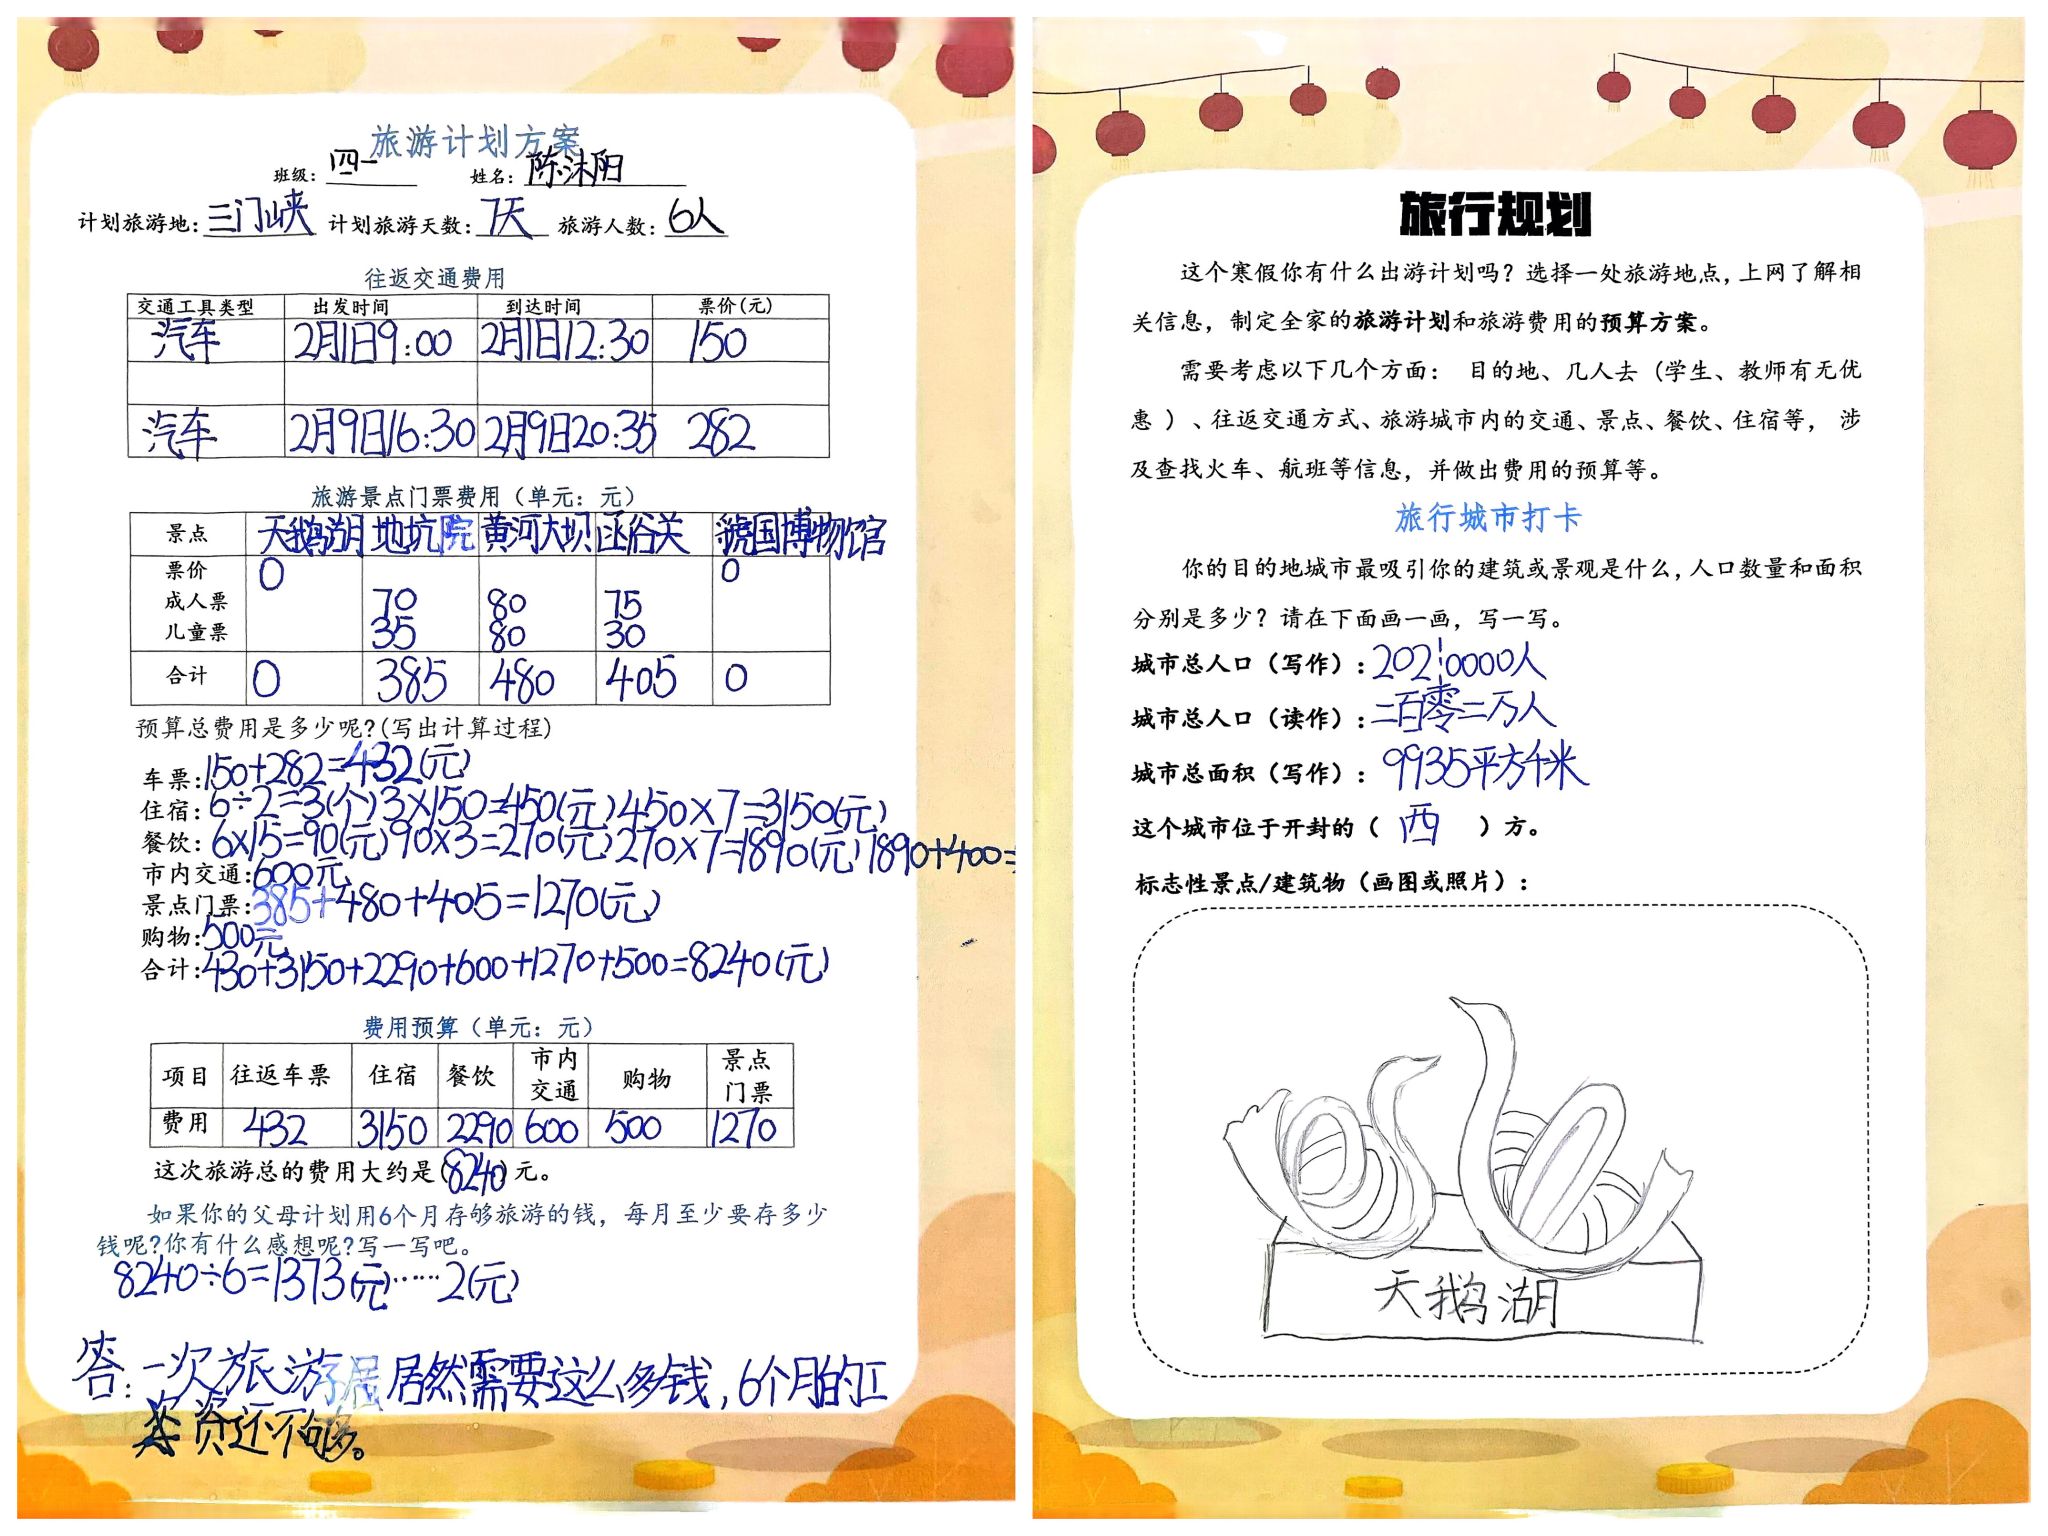 旅游计划方案
班级：四一 姓名：陈沐阳
计划旅游地：三门峡 计划旅游天数：7天 旅游人数：6人
往返交通费用
交通工具类型 出发时间 到达时间 票价(元)
汽车 2月1日9:00 2月1日12:30 150
汽车 2月9日16:30 2月9日20:35 282
旅游景点门票费用（单元：元）
景点 天鹅湖 地坑院 黄河大坝 函谷关 虢国博物馆
票价 0 0
成人票 70 80 75
儿童票 35 80 30
合计 0 385 480 405 0
预算总费用是多少呢?(写出计算过程)
车票:150+282=432(元)
住宿:6÷2=3(个)3×150=450(元)450×7=3150(元)
餐饮:6×15=90(元)90×3=270(元)270×7=1890(元)1890+400=
市内交通:600元
景点门票:385+480+405=1270(元)
购物:500元
合计:430+3150+2290+600+1270+500=8240(元)
费用预算（单元：元）
项目 往返车票 住宿 餐饮 市内交通 购物 景点门票
费用 432 3150 2290 600 500 1270
这次旅游总的费用大约是(8240)元。
如果你的父母计划用6个月存够旅游的钱，每月至少要存多少
钱呢?你有什么感想呢?写一写吧。
8240÷6=1373(元)……2(元)
答:一次旅游居居然需要这么多钱,6个月的工
资还不够。
旅行规划
这个寒假你有什么出游计划吗？选择一处旅游地点，上网了解相
关信息，制定全家的旅游计划和旅游费用的预算方案。
需要考虑以下几个方面： 目的地、几人去（学生、教师有无优
惠 ）、往返交通方式、旅游城市内的交通、景点、餐饮、住宿等， 涉
及查找火车、航班等信息，并做出费用的预算等。
旅行城市打卡
你的目的地城市最吸引你的建筑或景观是什么，人口数量和面积
分别是多少？请在下面画一画，写一写。
城市总人口（写作）：2020000人
城市总人口（读作）：二百零二万人
城市总面积（写作）：9935平方千米
这个城市位于开封的（ 西 ）方。
标志性景点/建筑物（画图或照片）：
天鹅湖